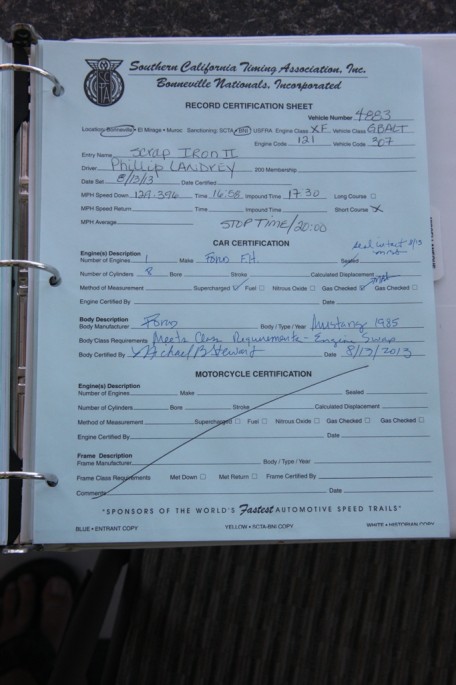 SCTA
Southern California Timing Association, Inc.
Bonneville Nationals, Incorporated
RECORD CERTIFICATION SHEET
Vehicle Number 4883
Location: Bonneville • El Mirage • Muroc Sanctioning: SCTA • BNI USFRA Engine Class XF Vehicle Class GBALT
Engine Code 121 Vehicle Code 307
Entry Name SCRAP IRON II
Driver Phillip LANDREY 200 Membership
Date Set 8/13/13 Date Certified
MPH Speed Down 129.396 Time 16:58 Impound Time 17:30 Long Course
MPH Speed Return Time Impound Time Short Course X
MPH Average STOP TIME/20:00
CAR CERTIFICATION
Seal intact 8/13
Engine(s) Description
Number of Engines 1 Make FORD F.H. Sealed
Number of Cylinders 8 Bore Stroke Calculated Displacement
Method of Measurement Supercharged Fuel Nitrous Oxide Gas Checked Gas Checked
Engine Certified By Date
Body Description
Body Manufacturer FORD Body / Type / Year Mustang 1985
Body/Class Requirements Meets Class Requirements - Engine Swap
Body Certified By Michael B Stewart Date 8/13/2013
MOTORCYCLE CERTIFICATION
Engine(s) Description
Number of Engines Make Sealed
Number of Cylinders Bore Stroke Calculated Displacement
Method of Measurement Supercharged Fuel Nitrous Oxide Gas Checked Gas Checked
Engine Certified By Date
Frame Description
Frame Manufacturer Body / Type / Year
Frame Class Requirements Met Down Met Return Frame Certified By
Comments Date
"SPONSORS OF THE WORLD'S Fastest AUTOMOTIVE SPEED TRAILS"
BLUE • ENTRANT COPY YELLOW • SCTA-BNI COPY WHITE • HISTORIAN COPY